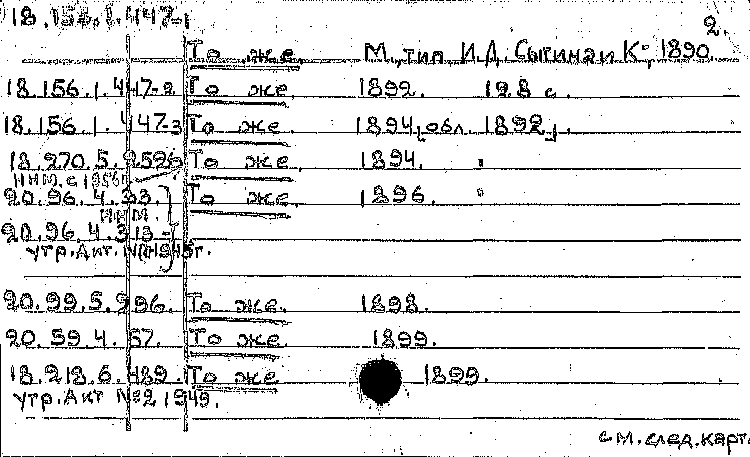 18.156.1.447-1
2.
То же М., тип. И.Д. Сытина и К°, 1890.
18.156.1.447-2 То же 1892. 128 с.
18.156.1.447-3 То же. 1894 [обл. 1892].
18.270.5.2526 То же. 1894. "
инм. с
20.96.4.33. То же. 1896. "
инм.
20.96.4.313-
утр. Акт. 1945г.
20.99.5.296. То же. 1898.
20.59.4.57. То же 1899.
18.218.6.489. То же 1899.
утр. Акт №2 1949.
см. след. карт.